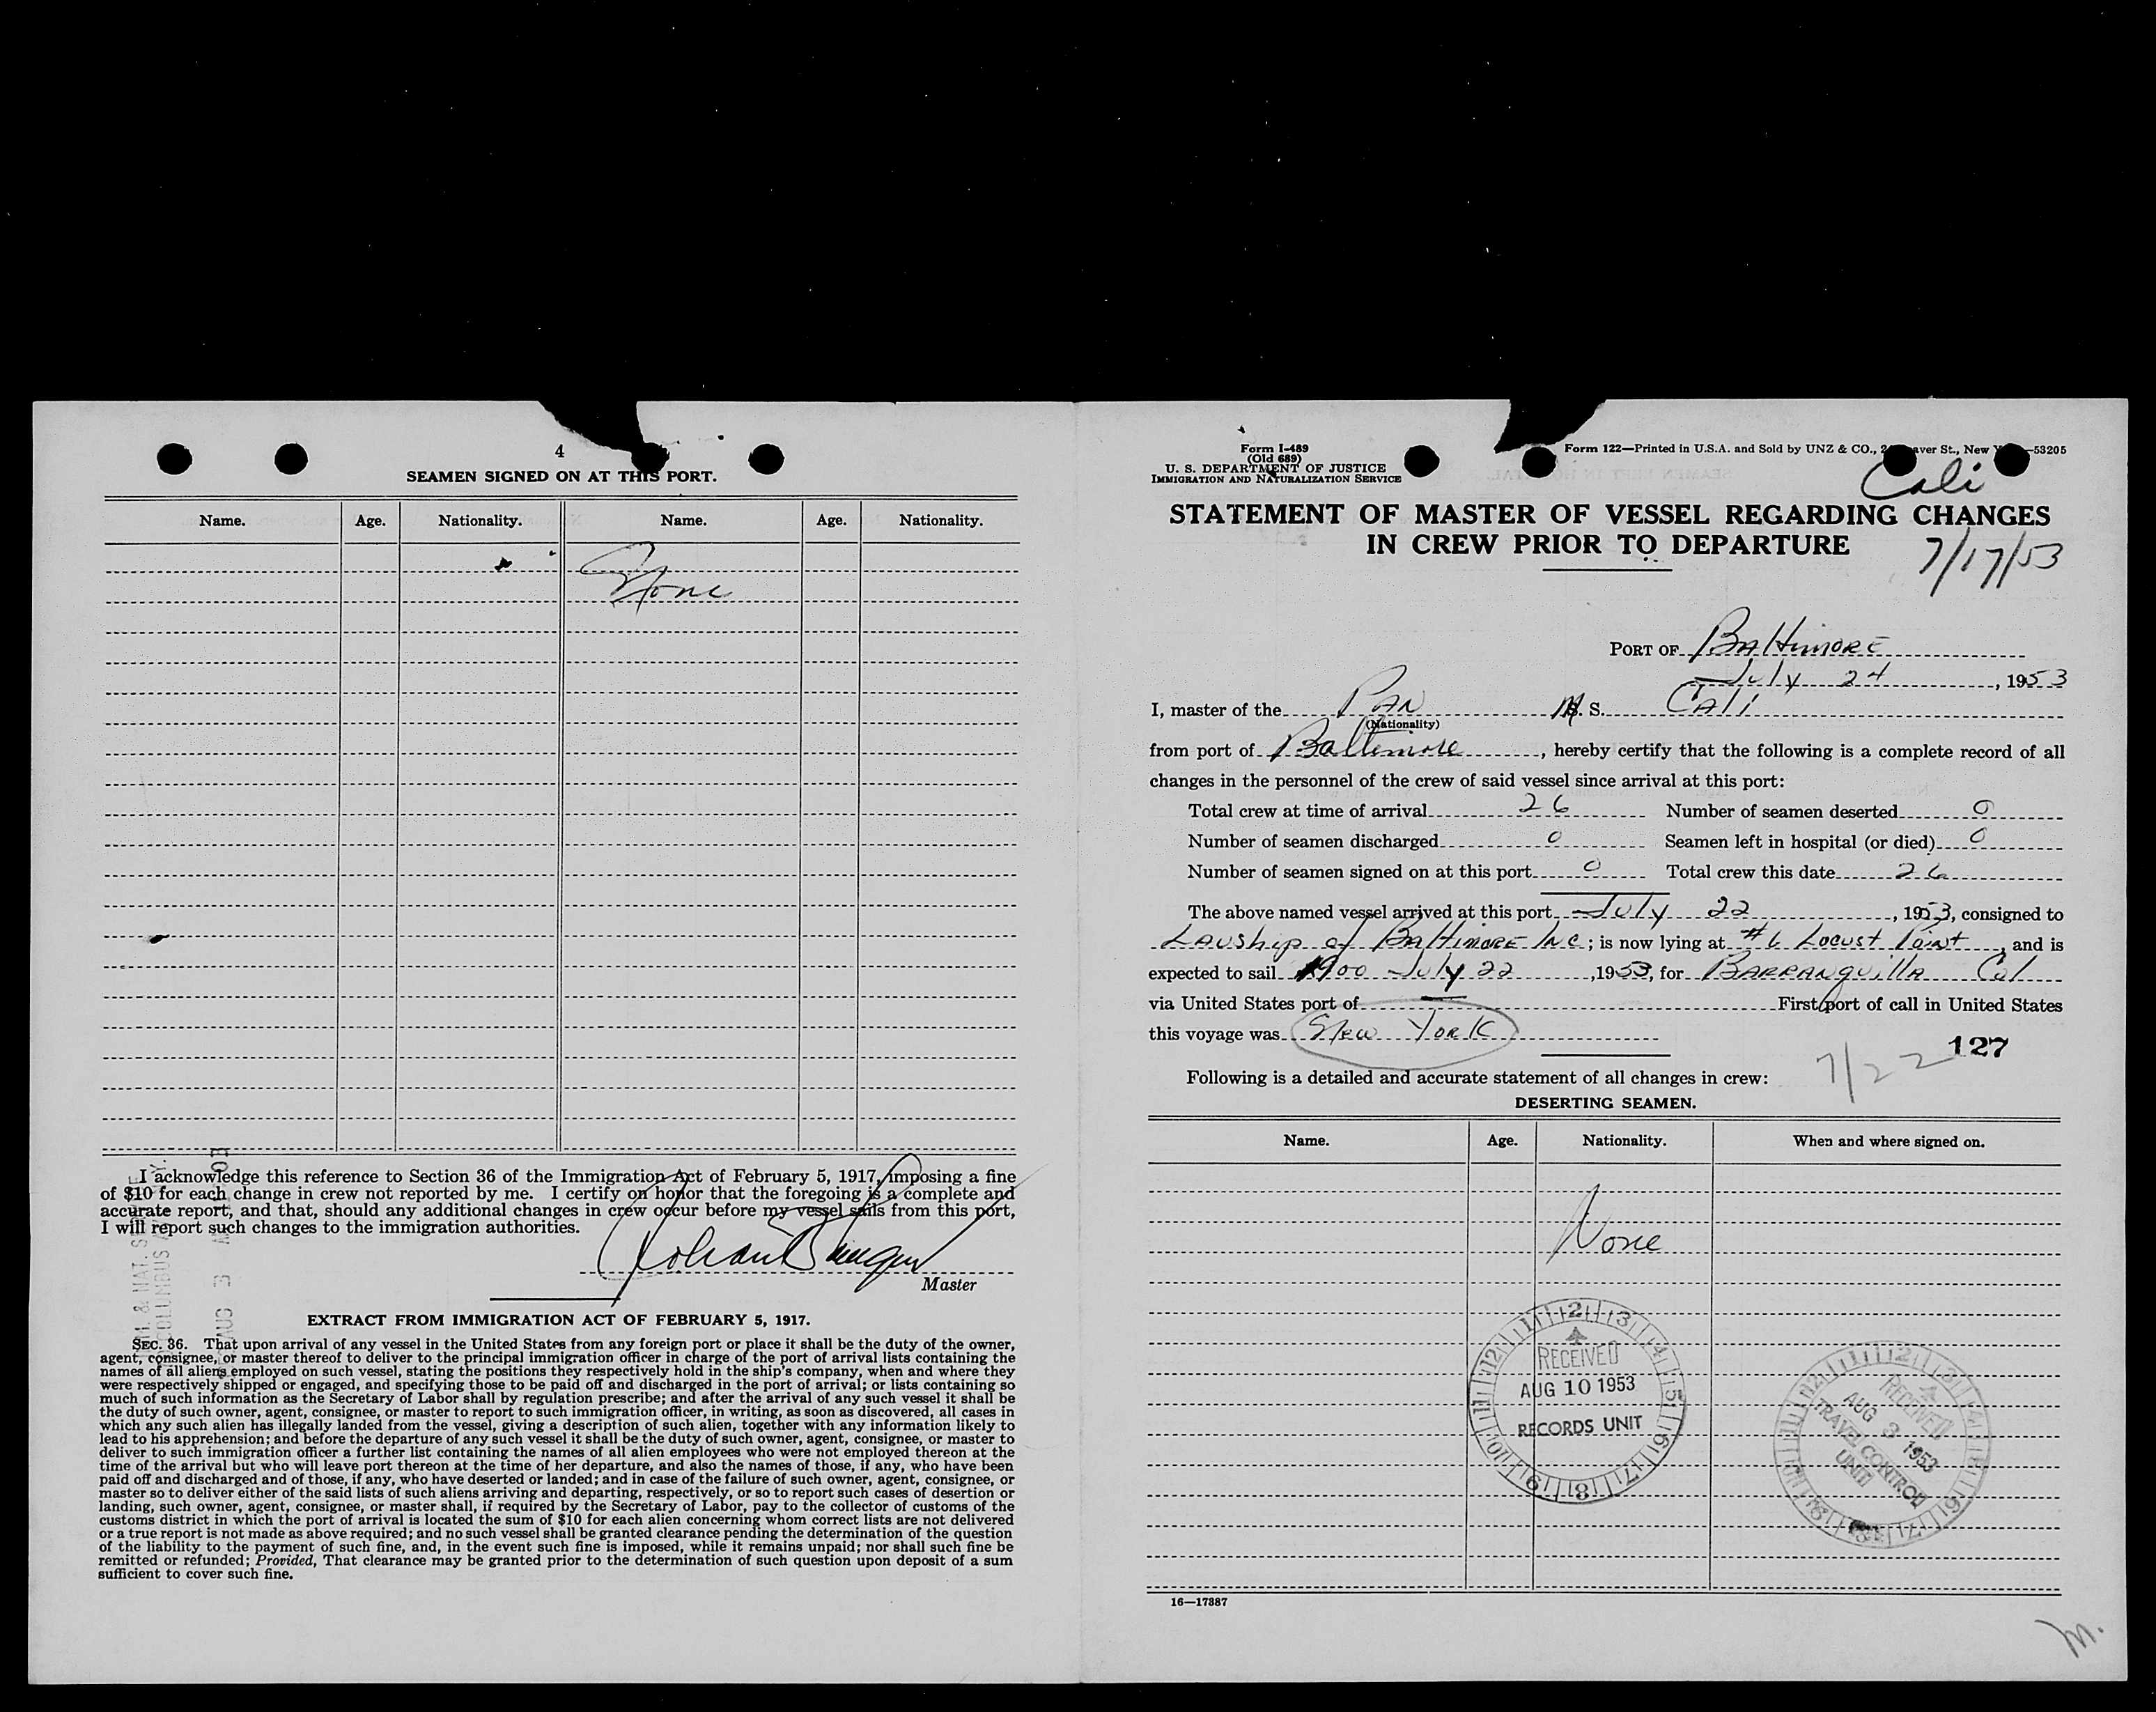 4
SEAMEN SIGNED ON AT THIS PORT.
Name. Age. Nationality. Name. Age. Nationality.
None
I acknowledge this reference to Section 36 of the Immigration Act of February 5, 1917, imposing a fine
of $10 for each change in crew not reported by me. I certify on honor that the foregoing is a complete and
accurate report, and that, should any additional changes in crew occur before my vessel sails from this port,
I will report such changes to the immigration authorities.
Master
AUG 3
EXTRACT FROM IMMIGRATION ACT OF FEBRUARY 5, 1917.
SEC. 36. That upon arrival of any vessel in the United States from any foreign port or place it shall be the duty of the owner,
agent, consignee, or master thereof to deliver to the principal immigration officer in charge of the port of arrival lists containing the
names of all aliens employed on such vessel, stating the positions they respectively hold in the ship's company, when and where they
were respectively shipped or engaged, and specifying those to be paid off and discharged in the port of arrival; or lists containing so
much of such information as the Secretary of Labor shall by regulation prescribe; and after the arrival of any such vessel it shall be
the duty of such owner, agent, consignee, or master to report to such immigration officer, in writing, as soon as discovered, all cases in
which any such alien has illegally landed from the vessel, giving a description of such alien, together with any information likely to
lead to his apprehension; and before the departure of any such vessel it shall be the duty of such owner, agent, consignee, or master to
deliver to such immigration officer a further list containing the names of all alien employees who were not employed thereon at the
time of the arrival but who will leave port thereon at the time of her departure, and also the names of those, if any, who have been
paid off and discharged and of those, if any, who have deserted or landed; and in case of the failure of such owner, agent, consignee, or
master so to deliver either of the said lists of such aliens arriving and departing, respectively, or so to report such cases of desertion or
landing, such owner, agent, consignee, or master shall, if required by the Secretary of Labor, pay to the collector of customs of the
customs district in which the port of arrival is located the sum of $10 for each alien concerning whom correct lists are not delivered
or a true report is not made as above required; and no such vessel shall be granted clearance pending the determination of the question
of the liability to the payment of such fine, and, in the event such fine is imposed, while it remains unpaid; nor shall such fine be
remitted or refunded; Provided, That clearance may be granted prior to the determination of such question upon deposit of a sum
sufficient to cover such fine.
Form I-489
(Old 689)
U. S. DEPARTMENT OF JUSTICE
IMMIGRATION AND NATURALIZATION SERVICE
Form 122—Printed in U.S.A. and Sold by UNZ & CO., 2 aver St., New —53205
Cali
STATEMENT OF MASTER OF VESSEL REGARDING CHANGES
IN CREW PRIOR TO DEPARTURE
7/17/53
PORT OF Baltimore
July 24, 1953
I, master of the Pan M. S. Cali
(Nationality)
from port of Baltimore, hereby certify that the following is a complete record of all
changes in the personnel of the crew of said vessel since arrival at this port:
Total crew at time of arrival 26 Number of seamen deserted 0
Number of seamen discharged 0 Seamen left in hospital (or died) 0
Number of seamen signed on at this port 0 Total crew this date 26
The above named vessel arrived at this port July 22, 1953, consigned to
Lauship of Baltimore Inc; is now lying at #6 Locust Point, and is
expected to sail 1900 July 22, 1953, for Barranquilla Col
via United States port of — First port of call in United States
this voyage was New York
127
7/22
Following is a detailed and accurate statement of all changes in crew:
DESERTING SEAMEN.
Name. Age. Nationality. When and where signed on.
None
RECEIVED
AUG 10 1953
RECORDS UNIT
RECEIVED
AUG 3 1953
TRAVEL CONTROL
UNIT
16—17887
M.